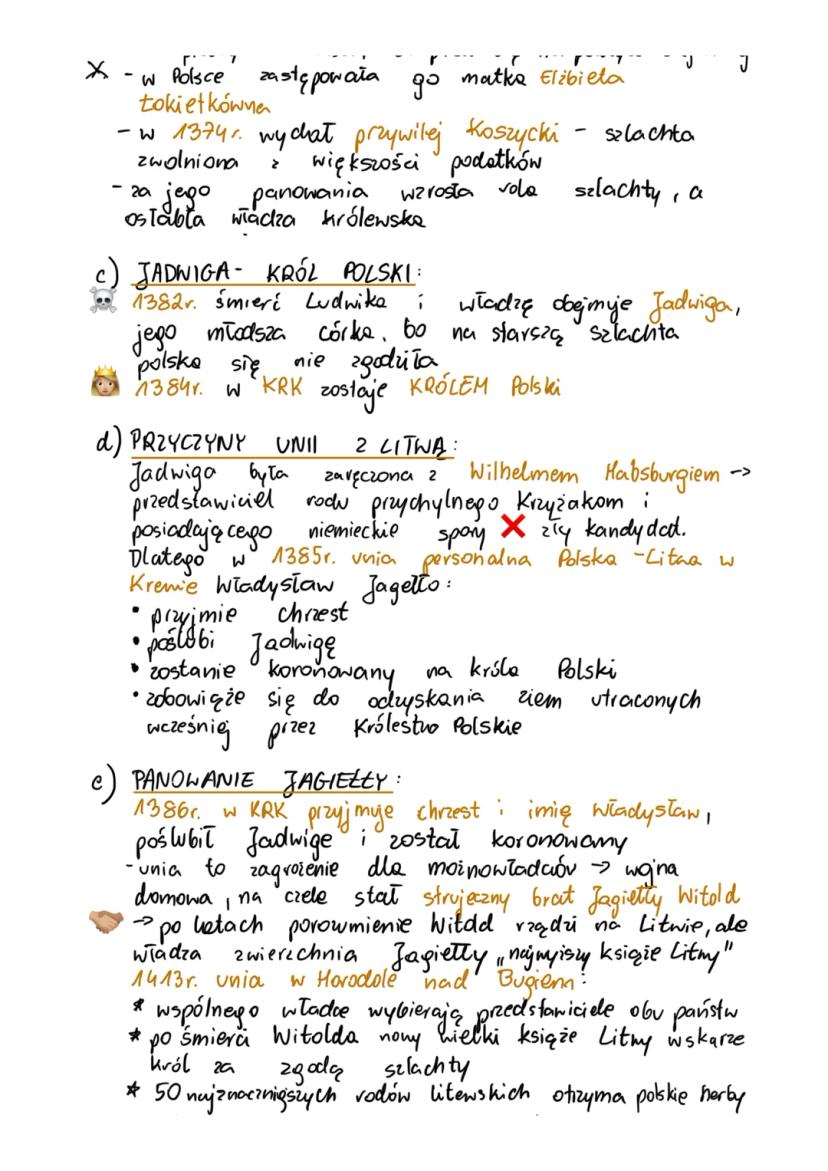 - w Polsce zastępowała go matka Elżbieta
Łokietkówna
- w 1374r. wydał przywilej Koszycki - szlachta
zwolniona z większości podatków
- za jego panowania wzrosła rola szlachty, a
osłabła władza królewska
c) JADWIGA- KRÓL POLSKI:
1382r. śmierć Ludwika i władzę obejmuje Jadwiga,
jego młodsza córka, bo na starszą szlachta
polska się nie zgodziła
1384r. w KRK zostaje KRÓLEM Polski
d) PRZYCZYNY UNII Z LITWĄ:
Jadwiga była zaręczona z Wilhelmem Habsburgiem ->
przedstawiciel rodu przychylnego Krzyżakom i
posiadającego niemieckie spory ❌ zły kandydat.
Dlatego w 1385r. unia personalna Polska -Litwa w
Krewie Władysław Jagełło:
• przyjmie chrzest
• poślubi Jadwigę
• zostanie koronowany na króla Polski
• zobowiąże się do odzyskania ziem utraconych
wcześniej przez Królestwo Polskie
e) PANOWANIE JAGIEŁŁY:
1386r. w KRK przyjmuje chrzest i imię Władysław,
poślubił Jadwige i został koronowany
-unia to zagrożenie dla możnowładców -> wojna
domowa, na czele stał stryjeczny brat Jagiełły Witold
-> po latach porowmienie Witold rządzi na Litwie, ale
władza zwierzchnia Jagiełły „najwyższy książe Litwy"
1413r. unia w Horodole nad Bugiem:
* wspólnego władce wybierają przedstawiciele obu państw
* po śmierci Witolda nowy wielki książe Litwy wskarze
król za zgodą szlachty
* 50 najznaczniejszych rodów litewskich otrzyma polskie herby